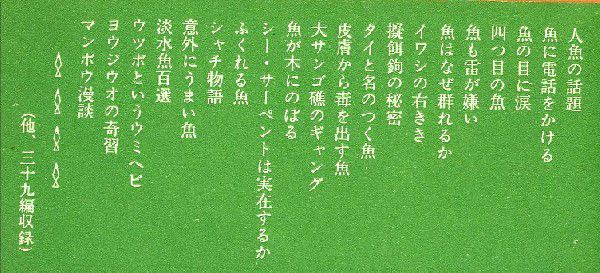 人魚の話題
魚に電話をかける
魚の目に涙
四つ目の魚
魚も雷が嫌い
魚はなぜ群れるか
イワシの右きき
擬餌鉤の秘密
タイと名のつく魚
皮膚から毒を出す魚
大サンゴ礁のギャング
魚が木にのぼる
シー・サーペントは実在するか
ふくれる魚
シャチ物語
意外にうまい魚
淡水魚百選
ウツボというウミヘビ
ヨウジウオの奇習
マンボウ漫談
（他、三十九編収録）